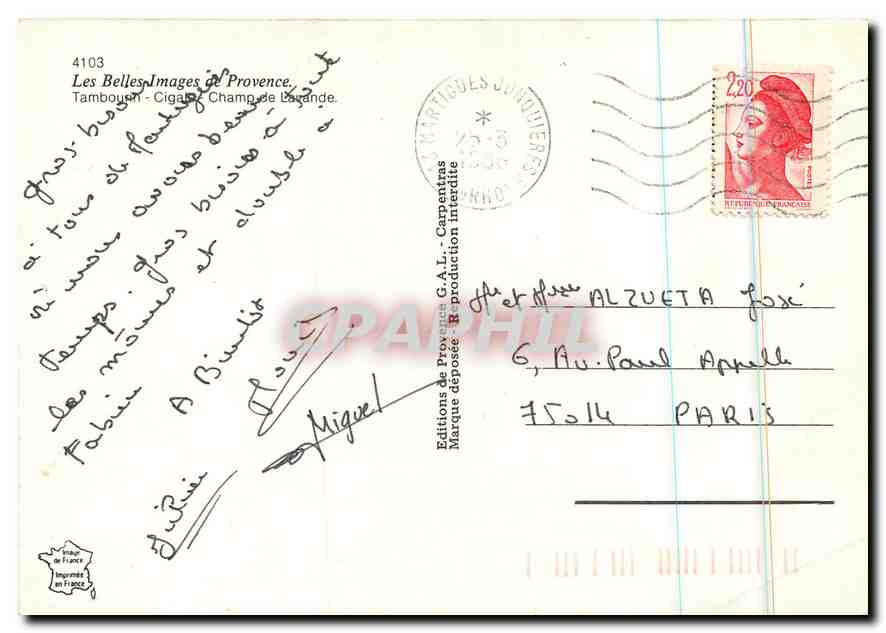 4103
Les Belles Images de Provence.
Tambourin - Cigale - Champ de Lavande.
Gros bisous
à tous de Martigues
où nous avons beau
temps. Gros bisous à toute
les mômes et double à
Fabien
A Bientôt
Miguel
Editions de Provence G.A.L. - Carpentras
Marque déposée - Reproduction interdite
MARTIGUES JONQUIERES
2,20
REPUBLIQUE FRANCAISE
Mr et Mme ALZUETA José
6, Av. Paul Appelle
75014 PARIS
CPAPHIL
Image
de France
Imprimée
en France